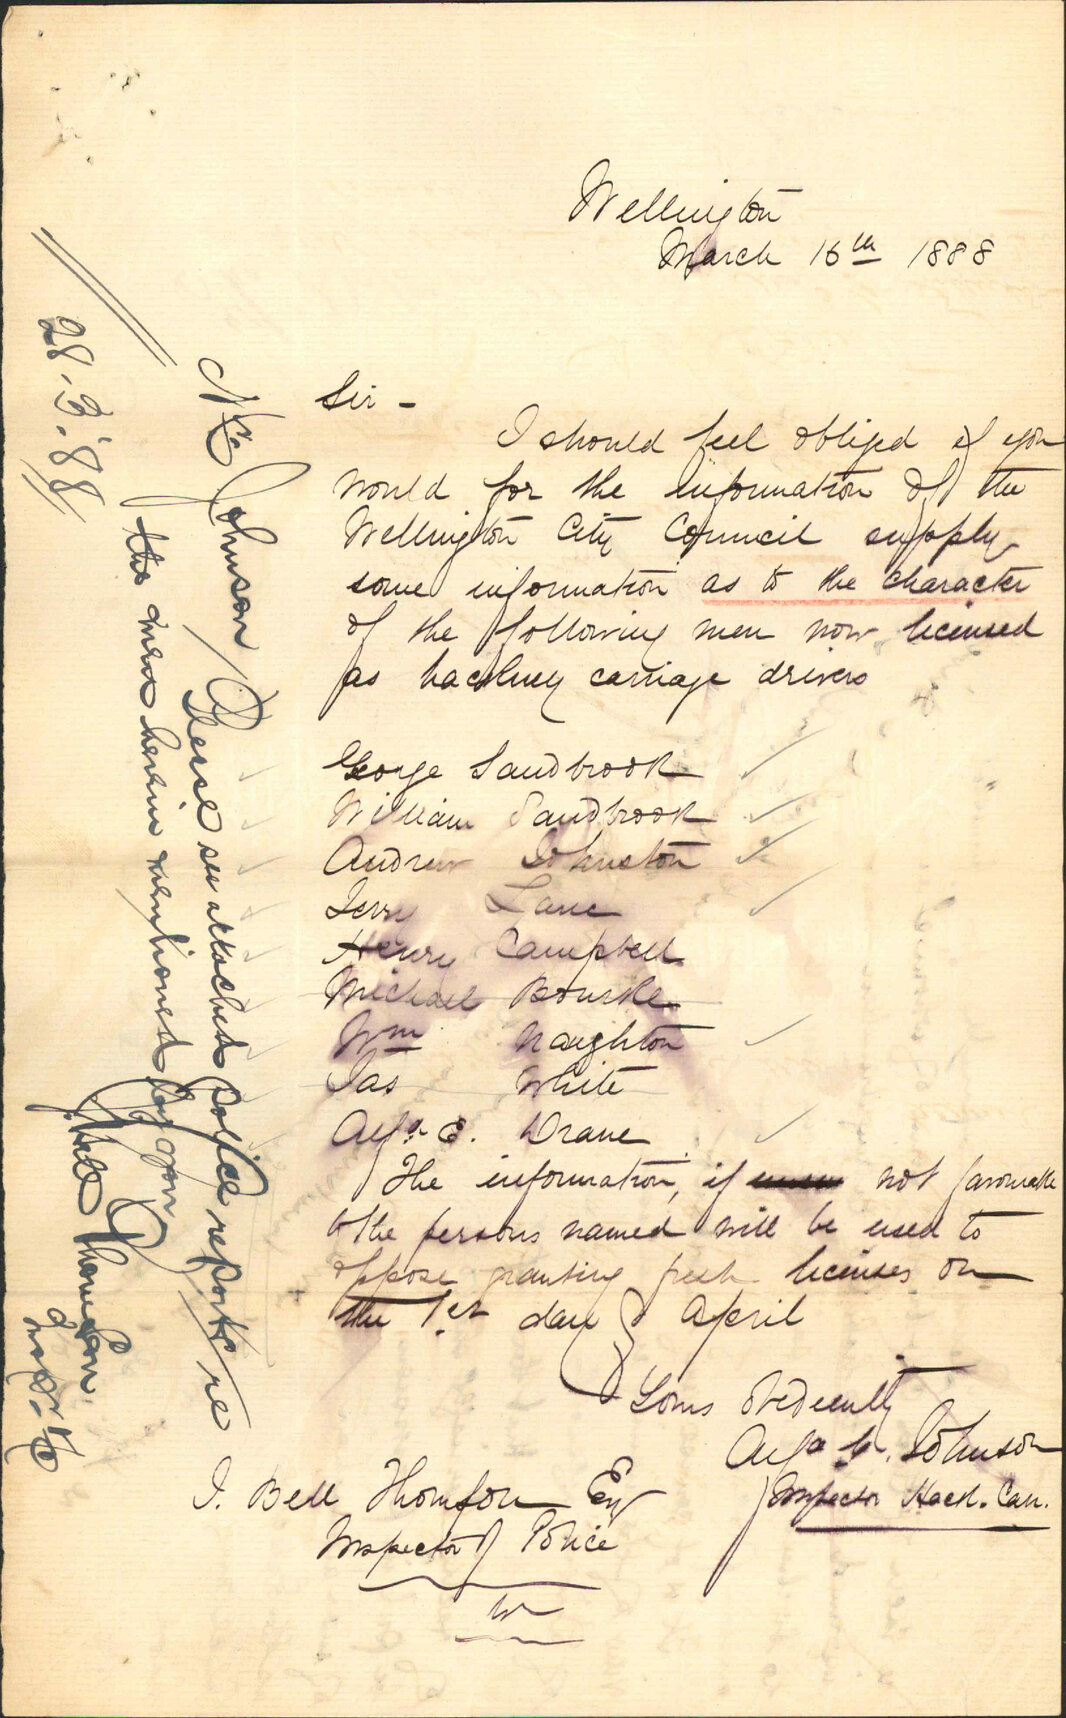 Wellington
March 16th 1888
Sir -
I should feel obliged if you
would for the information of the
Wellington City Council supply
some information as to the character
of the following men now licensed
as hackney carriage drivers
George Sandbrook
William Sandbrook
Andrew Johnston
Jerry Lane
Henry Campbell
Michael Bourke
Wm Naughton
Jas White
Alfd E. Drane
The information, if not favourable
to the persons named will be used to
oppose granting fresh licenses on
the 1st day of April
Yours obediently
Johnson
Inspector Hack. Carr.
J. Bell Thomson Esq
Inspector of Police
W
Mr Johnson / Please see attached police reports re
the men herein mentioned by you
J. Bell Thomson
Inspr
28.3.88